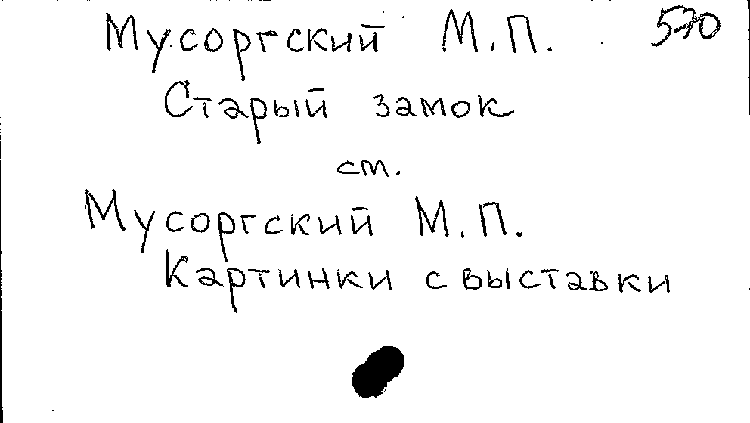 Мусоргский М.П. 570
Старый замок
см.
Мусоргский М.П.
Картинки с выставки